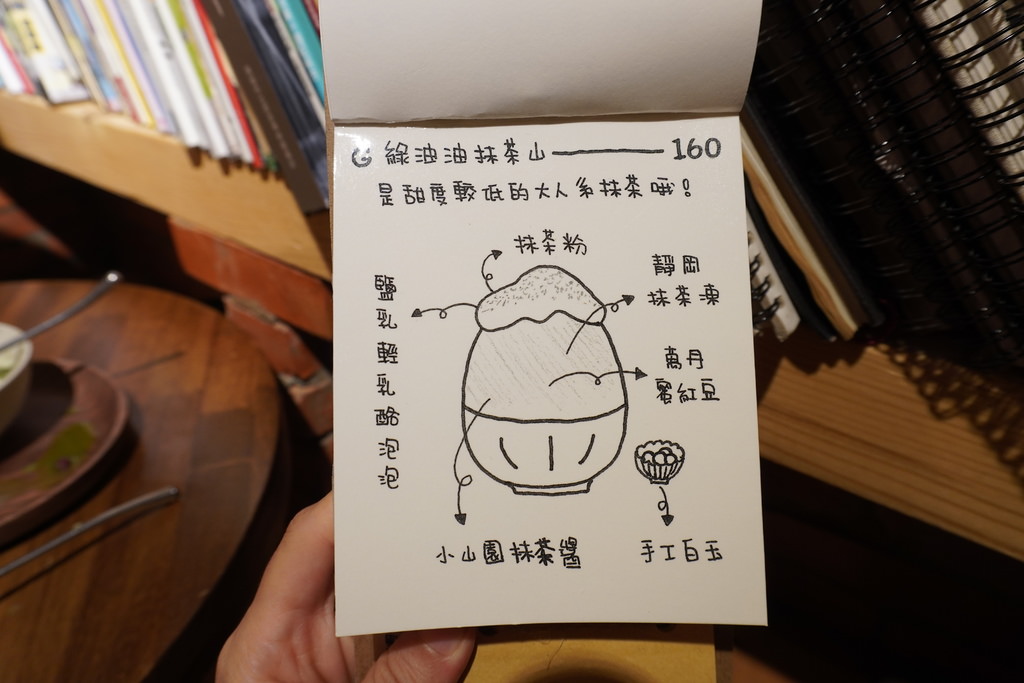 G 綠油油抹茶山 —— 160
是甜度較低的大人系抹茶哦！
抹茶粉
靜岡
抹茶凍
鹽乳輕乳酪泡泡
萬丹
蜜紅豆
小山園抹茶醬
手工白玉